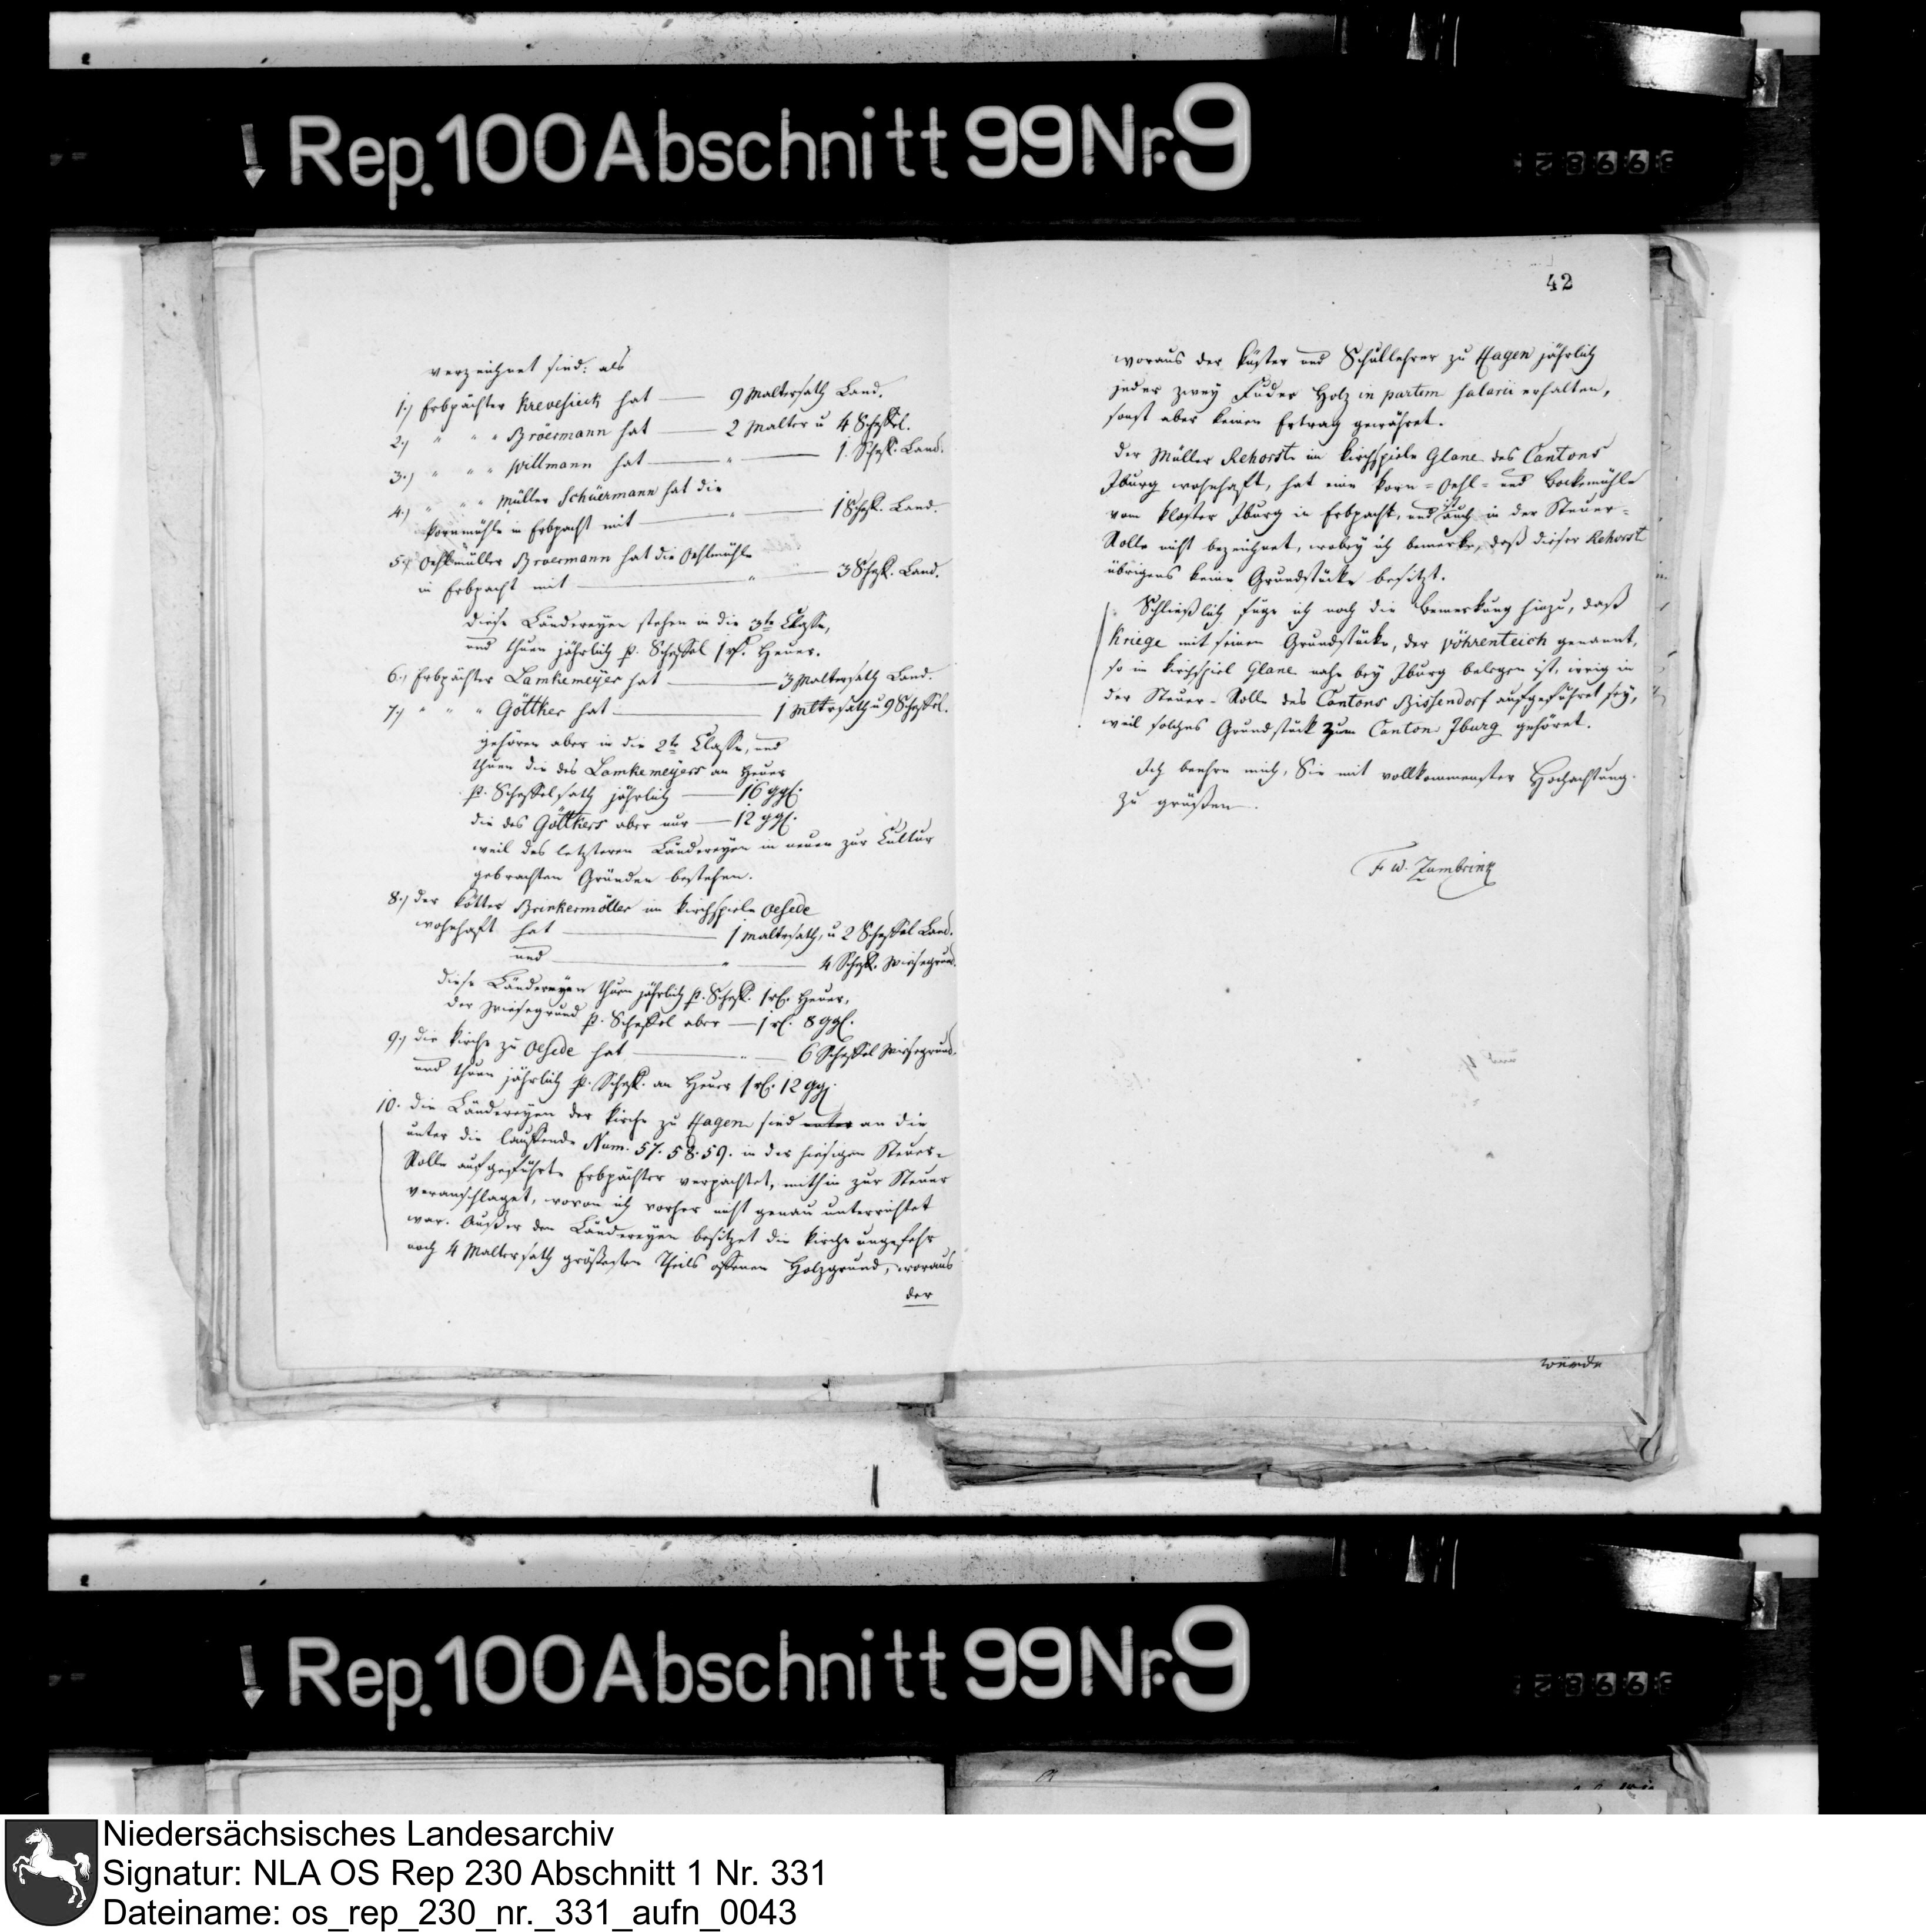 Rep. 100 Abschnitt 99 Nr. 9
verzeichnet sind: als
1.) Erbpächter Krevesieck hat — 9 Maltersath Land.
2.) " " " Bröermann hat — 2 Malter u 4 Scheffel.
3.) " " " Willmann hat — " — 1. Scheff. Land.
4.) " " " Müller Schüermann hat die
Kornmühle in Erbpacht mit — " — 1 Scheff. Land.
5.) Oehlmüller Broermann hat die Oehlmühle
in Erbpacht mit — " — 3 Scheff. Land.
diese Ländereyen stehen in die 3te Classe,
und thuen jährlich p. Scheffel 1 rt. Heuer.
6.) Erbpächter Lamkemeyer hat — 3 Maltersath Land.
7.) " " " Göttker hat — 1 Mltrsath u 9 Scheffel.
gehören aber in die 2te Classe, und
thuen die des Lamkemeyers an Heuer
p. Scheffelsath jährlich — 16 ggl.
die des Göttkers aber nur — 12 ggl.
weil des letzteren Ländereyen in neuen zur Cultur
gebrachten Gründen bestehen.
8.) der Kötter Brinkermöller im Kirchspiele Oesede
wohnhaft hat — 1 Maltersath, u 2 Scheffel Land.
und — " — 4 Scheff. Wiesegrund.
Diese Ländereyen thuen jährlich p. Scheff. 1 rt. Heuer,
der Wiesegrund p. Scheffel aber — 1 rt. 8 ggl.
9.) die Kirche zu Oesede hat — " — 6 Scheffel Wiesegrund.
und thuen jährlich p. Scheff. an Heuer 1 rt. 12 ggl.
10. die Ländereyen der Kirche zu Hagen sind unter an die
unter die lauffende Num. 57. 58. 59. in der hiesigen Steuer-
Rolle aufgeführte Erbpächter verpachtet, mithin zur Steuer
veranschlaget, wovon ich vorher nicht genau unterrichtet
war. Außer den Ländereyen besitzet die Kirche ungefehr
noch 4 Maltersath größesten Theils offenen Holzgrund, woraus
der
42
woraus der Küster und Schullehrer zu Hagen jährlich
jeder zwey Fuder Holz in partem salarii erhalten,
sonst aber keinen Ertrag gewähret.
Der Müller Rehorst im Kirchspiele Glane des Cantons
Iburg wohnhaft, hat eine Korn- Oehl- und Bockemühle
vom Kloster Iburg in Erbpacht, und ist auch in der Steuer-
Rolle nicht bezeichnet, wobey ich bemerke, daß dieser Rehorst
übrigens keine Grundstücke besitzt.
Schließlich füge ich noch die Bemerkung hinzu, daß
Kriege mit seinen Grundstücke, der Vöhrenteich genannt,
so in Kirchspiel Glane nahe bey Iburg belegen ist, irrig in
der Steuer-Rolle des Cantons Bissendorf aufgeführet sey,
weil solches Grundstück zum Canton Iburg gehöret.
Ich beehre mich, Sie mit vollkommenster Hochachtung
zu grüßen.
F. W. Zumbrink
würde
Rep. 100 Abschnitt 99 Nr. 9
Niedersächsisches Landesarchiv
Signatur: NLA OS Rep 230 Abschnitt 1 Nr. 331
Dateiname: os_rep_230_nr._331_aufn_0043